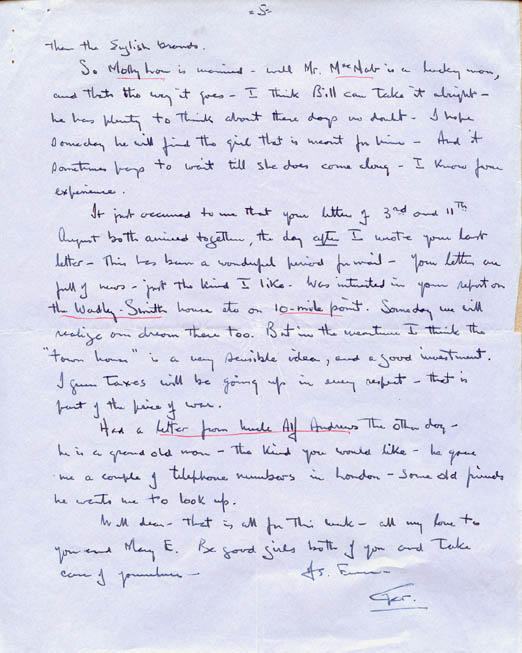 -5-
Then the English brands.
So Molly Lou is married - well Mr. MacNab is a lucky man,
and thats the way it goes - I think Bill can take it alright -
he has plenty to think about these days no doubt - I hope
someday he will find the girl that is meant for him - And it
sometimes pays to wait till she does come along - I know from
experience.
It just occurred to me that your letters of 3rd and 11th
August both arrived together, the day after I wrote your last
letter - This has been a wonderful period for mail - Your letters are
full of news - just the kind I like. Was interested in your report on
the Wadley-Smith house etc on 10-mile point. Someday we will
realize our dream there too. But in the meantime I think the
"town house" is a very sensible idea, and a good investment.
I guess taxes will be going up in every respect - that is
part of the price of war.
Had a letter from Uncle Alf Andrews the other day -
he is a grand old man - the kind you would like - he gave
me a couple of telephone numbers in London - some old friends
he wants me to look up.
Well dear - that is all for this week - all my love to
you and Mary E. Be good girls both of you and take
care of yourselves -
As Ever -